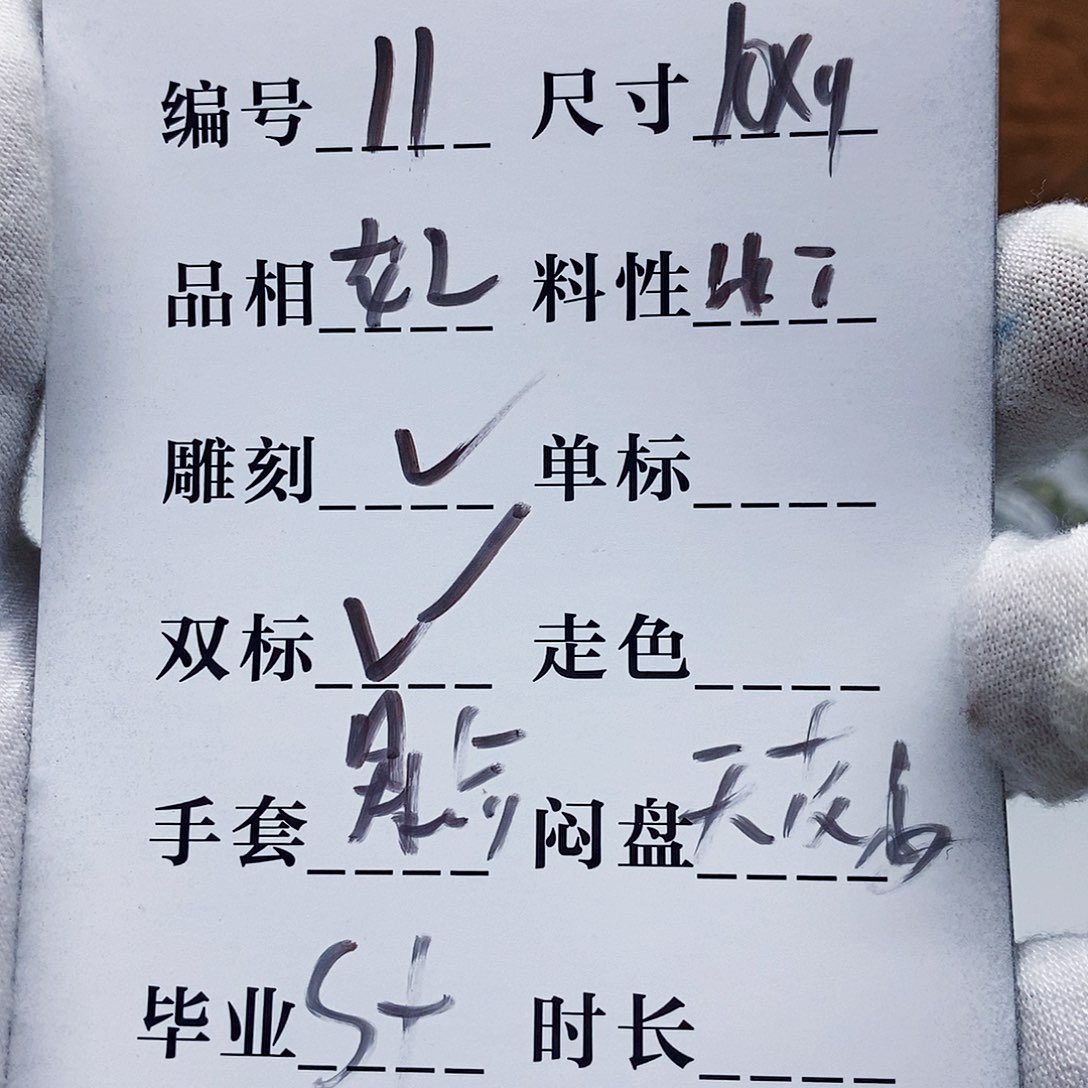 编号 11 尺寸 10X9
品相 料性
雕刻 ✓ 单标
双标 ✓ 走色
手套 闷盘
毕业 S+ 时长